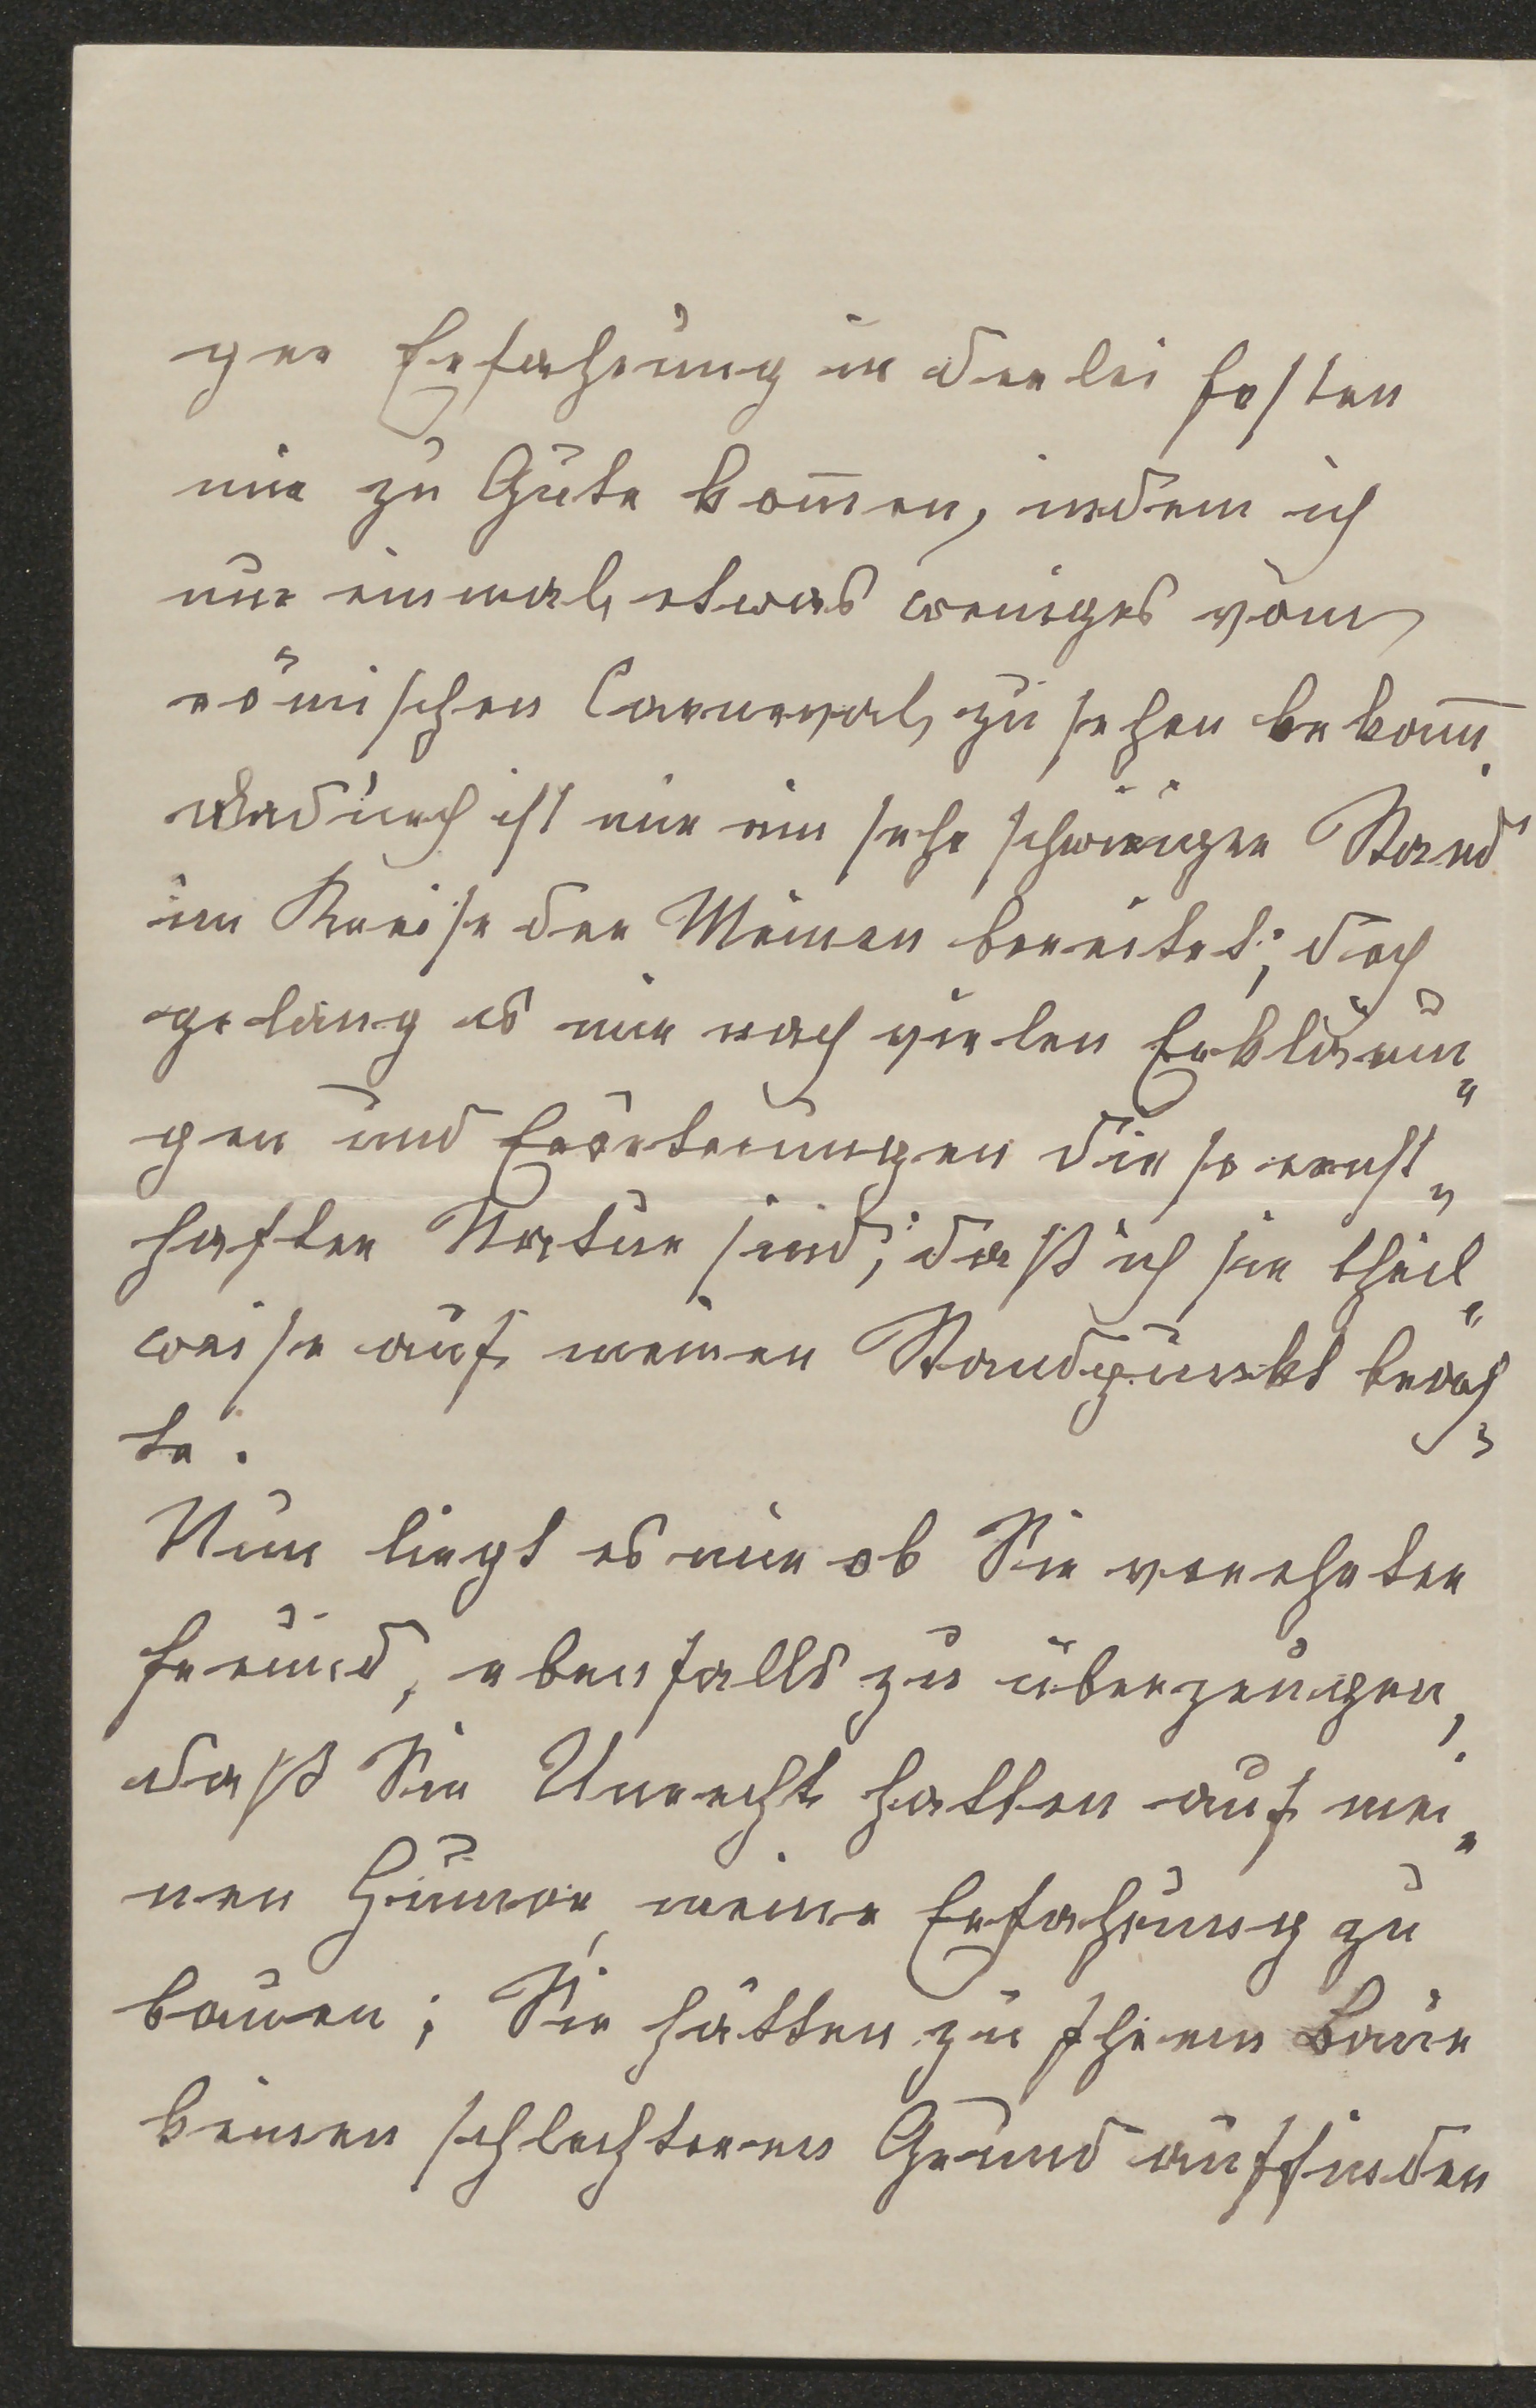 ger Erfahrung in derlei Festen
mir zu Gute kom̄en, indem ich
nur einmal etwas weniges vom
römischen Carneval zu sehen bekam̄.
Dadurch ist mir ein sehr schwieriger Stand
im Kreise der Meinen bereitet; doch
gelang es mir nach vielen Erklärun„
gen und Erörterungen die so ernst„
hafter Natur sind, daß ich sie theil„
weise auf meinen Standpunkt brach„
te.
Nun liegt es mir ob Sie verehrter
Freund, ebenfalls zu überzeugen,
daß Sie Unrecht hatten auf mei„
nen Humor, meine Erfahrung zu
bauen; Sie hätten zu Ihrem Baue
keinen schlechteren Grund auffinden